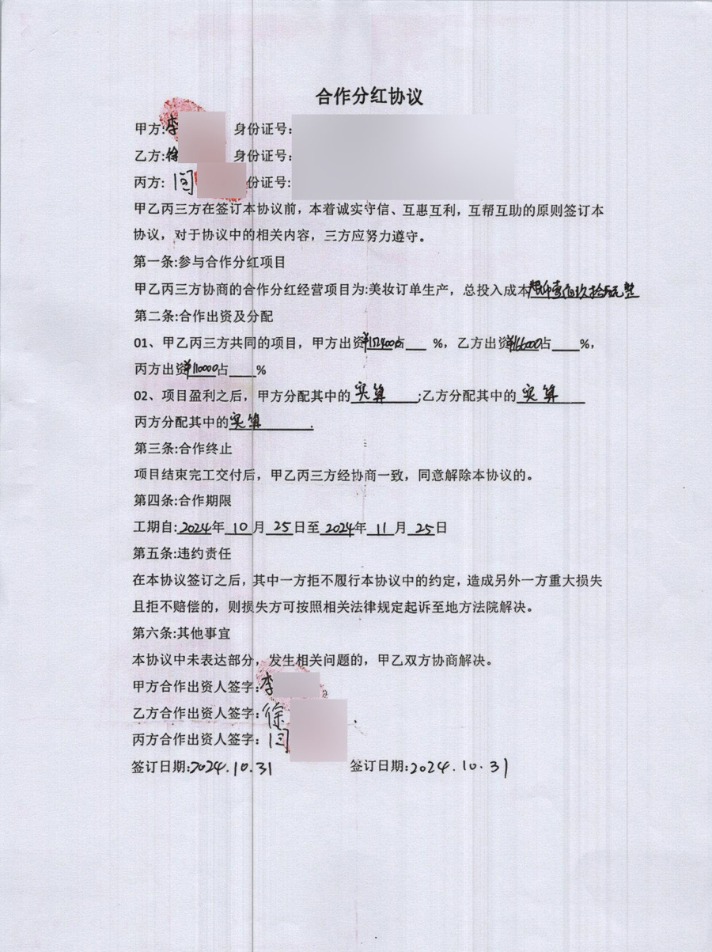 合作分红协议
甲方:李 身份证号:
乙方:徐 身份证号:
丙方: 闫 份证号:
甲乙丙三方在签订本协议前，本着诚实守信、互惠互利，互帮互助的原则签订本
协议，对于协议中的相关内容，三方应努力遵守。
第一条:参与合作分红项目
甲乙丙三方协商的合作分红经营项目为:美妆订单生产，总投入成本
第二条:合作出资及分配
01、甲乙丙三方共同的项目，甲方出资 占 %，乙方出资¥166000占 %，
丙方出资¥110000占 %
02、项目盈利之后，甲方分配其中的 实算 ;乙方分配其中的 实算
丙方分配其中的 实算 .
第三条:合作终止
项目结束完工交付后，甲乙丙三方经协商一致，同意解除本协议的。
第四条:合作期限
工期自: 2024年 10 月 25 日至 2024年 11 月 25日
第五条:违约责任
在本协议签订之后，其中一方拒不履行本协议中的约定，造成另外一方重大损失
且拒不赔偿的，则损失方可按照相关法律规定起诉至地方法院解决。
第六条:其他事宜
本协议中未表达部分，发生相关问题的，甲乙双方协商解决。
甲方合作出资人签字:李
乙方合作出资人签字:徐
丙方合作出资人签字:闫
签订日期:2024.10.31 签订日期:2024.10.31